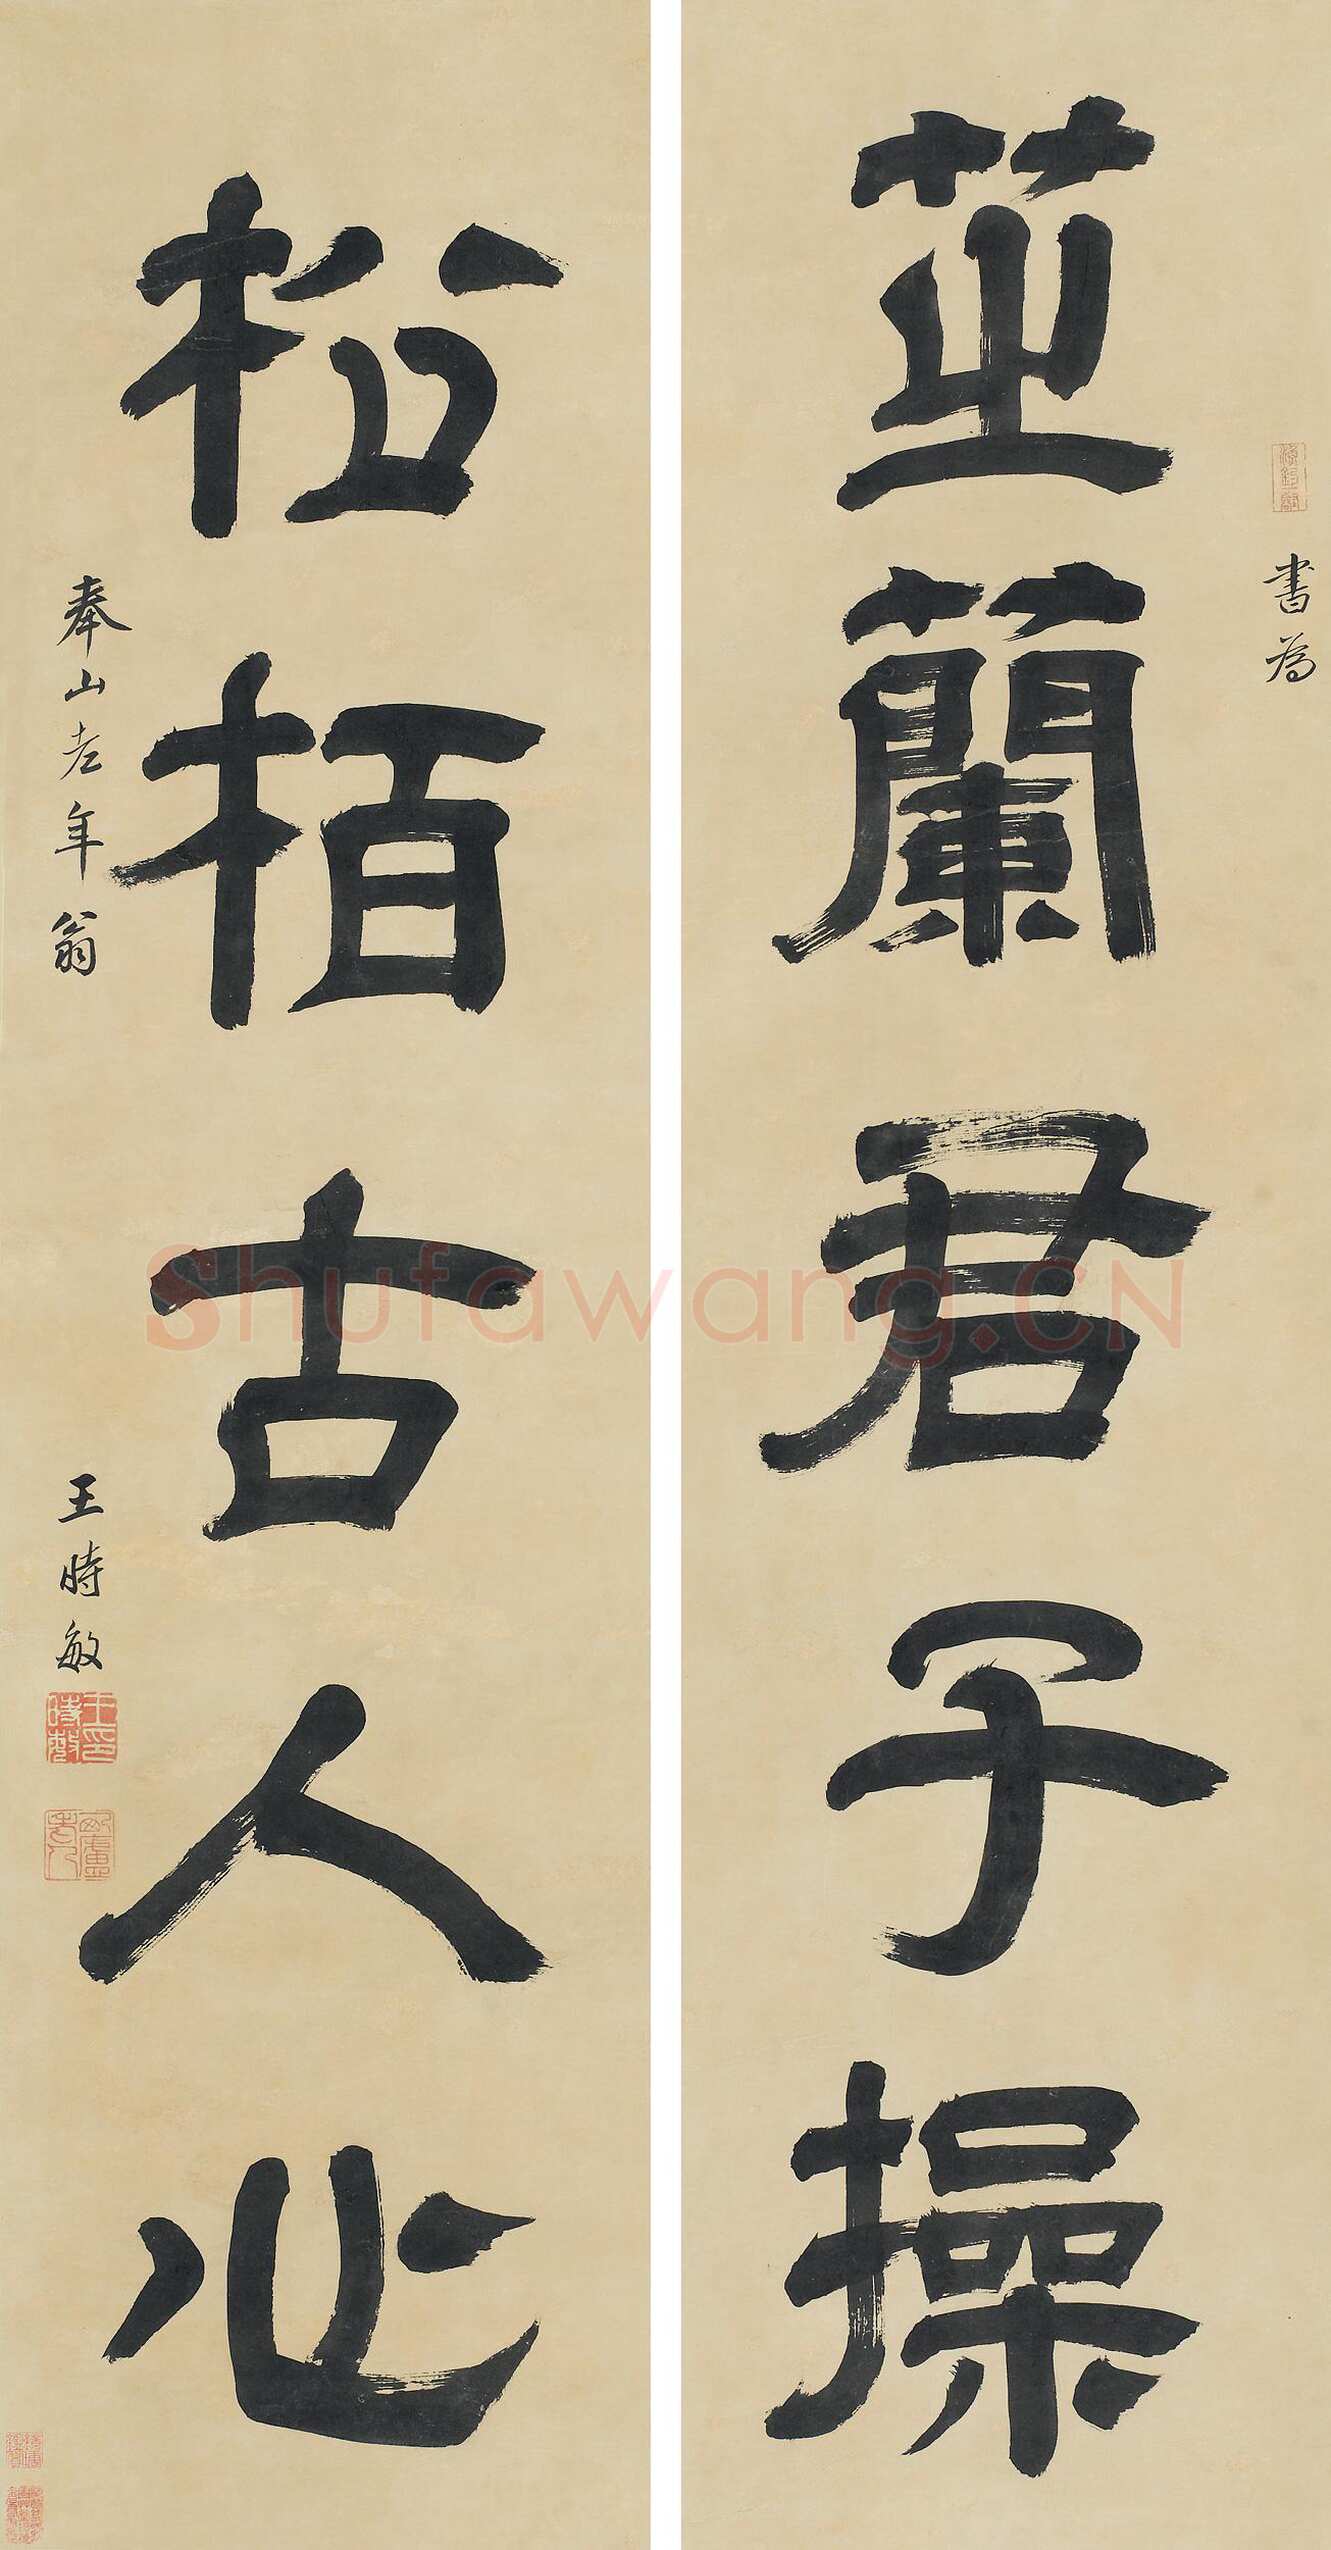 書為
芝蘭君子操
松栢古人心
奉山老年翁
王時敏
Shufawang.CN